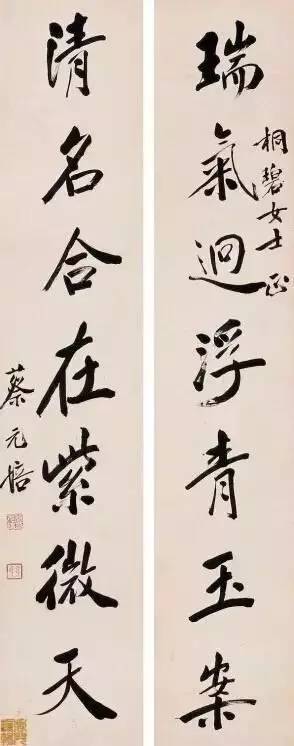 瑞氣迴浮青玉案
桐碧女士正
清名合在紫微天
蔡元培